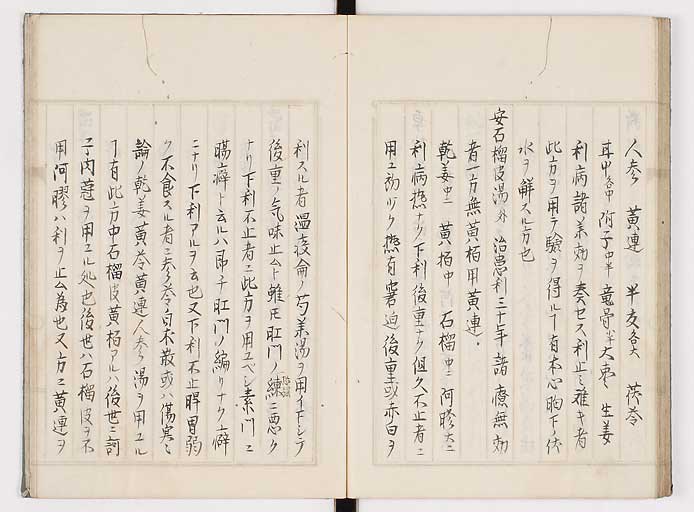 人参 黄連 半夏各大 茯苓
甘草各中 附子中半 竜骨半 大棗 生姜
利病諸薬効ヲ奏セス利止ミ難キ者
此方ヲ用テ験ヲ得ルヿ有本心胸下ノ伏
水ヲ解スル方也
安石榴皮湯外 治患利三十年諸療無効
者一方無黄柏用黄連
乾姜中 黄柏中 石榴中 阿膠大
利病熱ナク下利後重ナク但久不止者ニ
用ユ初ツク熱有窘迫後重或赤白ヲ
利スル者温疫論ノ芍薬湯ヲ用イトシテ
後重ノ気味止ムト雖モ肛門ノ練ニ悪ク
ナリ下利不止者ニ此方ヲ用ユベシ素門ニ
腸癖ト云ルハ即チ肛門ノ編リナク癖
ニナリ下利アルヲ云也又下利不止脾胃弱
ク不食スル者ニ参苓白朮散或ハ傷寒
論ノ乾姜黄苓黄連人参湯ヲ用ユル
ヿ有此方中石榴皮黄柏アルハ後世ニ訶
子肉蔲ヲ用ユル処也後世ハ石榴皮ヲ不
用阿膠ハ利ヲ止ム為也又方ニ黄連ヲ